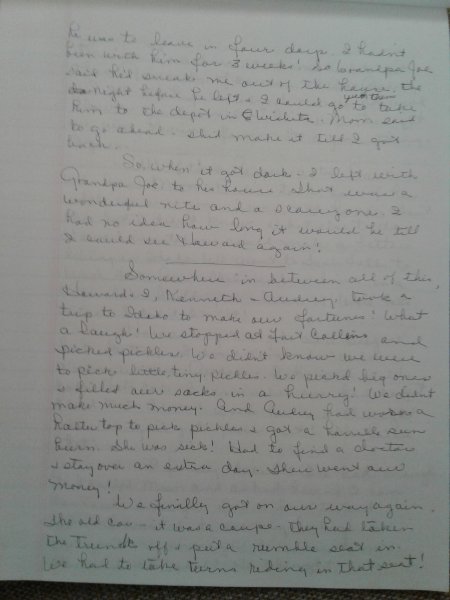 he was to leave in four days. I hadn't
been with him for 3 weeks! so Grandpa Joe
said he'd sneak me out of the house, the
night before he left & I could go with them to take
him to the depot in Wichita. Mom said
to go ahead. she'd make it till I got
back.
So, when it got dark - I left with
Grandpa Joe to his house. That was a
wonderful nite and a scarey one. I
had no idea how long it would be till
I could see Howard again!
Somewhere in between all of this,
Howard & I, Kenneth & Audrey took a
trip to Idaho to make our fortunes! What
a laugh! We stopped at Fort Collins and
picked pickles. We didn't know we were
to pick little, tiny, pickles. We picked big ones
& filled our sacks in a hurry! We didn't
make much money. And Audrey had worn a
halter top to pick pickles & got a horrible sun
burn. She was sick! Had to find a doctor
& stay over an extra day. There went our
money!
We finally got on our way again.
The old car - it was a coupe - they had taken
the trunk off & put a rumble seat in.
We had to take turns riding in that seat!